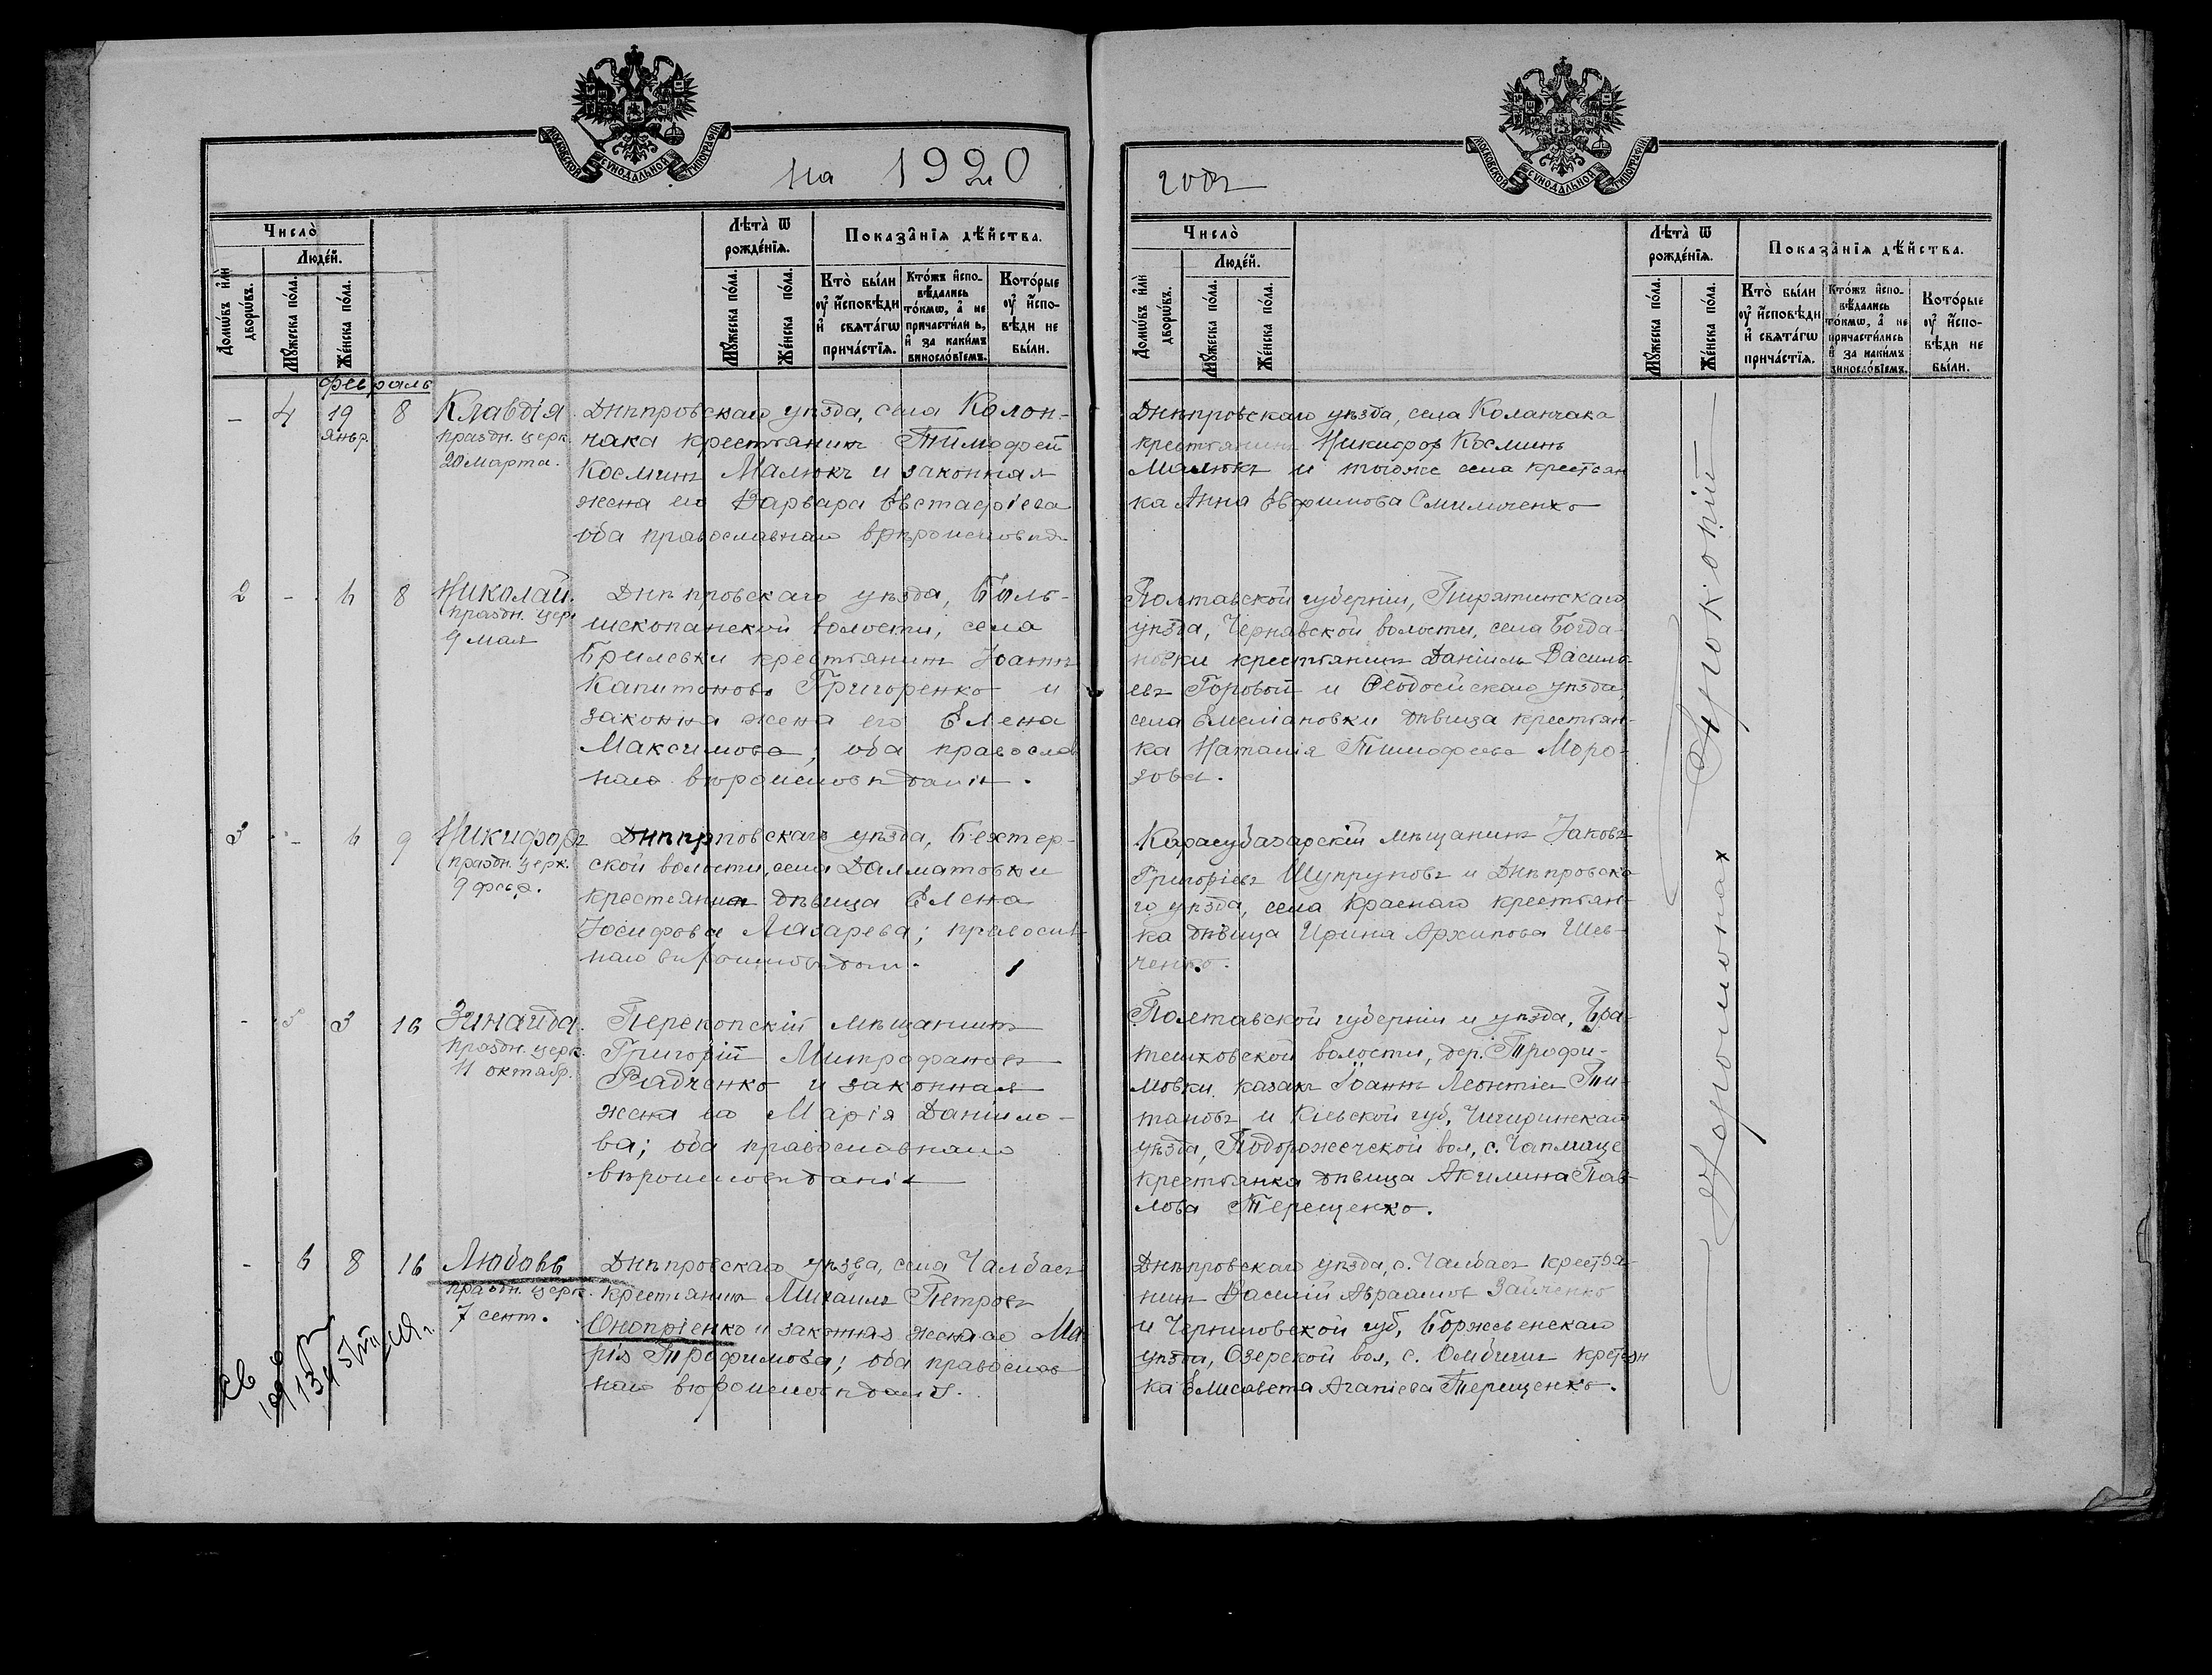 МОСКОВСКОЙ СѴНОДАЛЬНОЙ ТИПОГРАФІИ
На 1920
Число̀
Люде́й.
Домѡ́въ и҆лѝ дворѡ́въ.
Мꙋ́жеска по́ла.
Же́нска по́ла.
Лѣ́та ѿ рожде́нїѧ.
Мꙋ́жеска по́ла.
Же́нска по́ла.
Показа̂нїѧ дѣ́йства.
Кто̀ бы́ли ᲂу҆ и҆́сповѣди и҆ свѧта́гѡ прича́стїѧ.
Кто́жъ и҆спо-
вѣ́дались
то́кмѡ, а҆ не
причасти́лись,
и҆ за каки́мъ
виносло́вїемъ.
Кото́рые ᲂу҆ и҆́спо-
вѣди не бы́ли.
Февраль
- 4 19 янвр. 8 Клавдія
праздн. церк.
20 марта.
Днѣпровскаго уѣзда, села Колон-
чака крестьянинъ Тимофей
Косминъ Малюкъ и законная
жена его Варвара Евстафіева
оба православнаго вѣроисповѣд
2 - 4 8 Николай.
праздн. цер.
9 мая
Днѣпровскаго уѣзда, Боль-
шекопанской волости, села
Брилевки крестьянинъ Іоаннъ
Капитоновъ Григоренко и
законна жена его Елена
Максимова; оба православ
наго вѣроисповѣданія.
3 - 4 9 Никифоръ
праздн. церк.
9 февр.
Днѣпровскаго уѣзда, Бехтер-
ской волости, села Далматовки
крестьянка дѣвица Елена
Іосифова Лазарева; православ
наго вѣроисповѣдан.
1
- 5 3 16 Зинаида.
праздн. церк.
11 октябр.
Перекопскій мѣщанинъ
Григорій Митрофановъ
Радченко и законная
жена его Марія Данило-
ва; оба православнаго
вѣроисповѣданія
- 6 8 16 Любовь
праздн. церк.
7 сент.
Днѣпровскаго уѣзда, села Чалбасъ
крестьянинъ Михаилъ Петровъ
Оноприенко и законная жена его Ма
рія Трофимова; оба православ
наго вѣроисповѣданія.
МОСКОВСКОЙ СѴНОДАЛЬНОЙ ТИПОГРАФІИ
годъ
Число̀
Люде́й.
Домѡ́въ и҆лѝ дворѡ́въ.
Мꙋ́жеска по́ла.
Же́нска по́ла.
Лѣ́та ѿ рожде́нїѧ.
Мꙋ́жеска по́ла.
Же́нска по́ла.
Показа̂нїѧ дѣ́йства.
Кто̀ бы́ли ᲂу҆ и҆́сповѣди и҆ свѧта́гѡ прича́стїѧ.
Кто́жъ и҆спо-
вѣ́дались
то́кмѡ, а҆ не
причасти́лись
и҆ за каки́мъ
виносло́вїемъ.
Кото́рые ᲂу҆ и҆́спо-
вѣди не бы́ли.
Днѣпровскаго уѣзда, села Каланчака
крестьянинъ Никифоръ Косминъ
Малюкъ и тогоже села крестьян
ка Анна Евфимова
Полтавской губерніи, Пирятинскаго
уѣзда, Чернявской волости, села Богда-
новки крестьянинъ Даніилъ Василь-
евъ Горовой и Ѳеодосійскаго уѣзда,
села Емеліановки дѣвица крестьян-
ка Наталія Тимофеева Моро-
зова.
Карасубазарскій мѣщанинъ Іаковъ
Григоріевъ Шупруновъ и Днѣпровска
го уѣзда, села Краснаго крестьян-
ка дѣвица Ирина Архипова Шев-
ченко.
Полтавской губерніи и уѣзда, Бра-
тешковской волости, дер. Трофи-
мовки казакъ Іоаннъ Леонтіев Ти-
тановъ и Кіевской губ. Чигиринскаго
уѣзда, Подорожечской вол, с. Чаплище
крестьянка дѣвица Акилина Пав-
лова Терещенко.
Днѣпровскаго уѣзда, с. Чалбасъ крестья-
нинъ Василій Авраамов Зайченко
и Черниговской губ, Борженскаго
уѣзда, Озерской вол, с. Омбишъ крестьян
ка Елисавета Агапіева Терещенко.
Іеромонах Прокопій